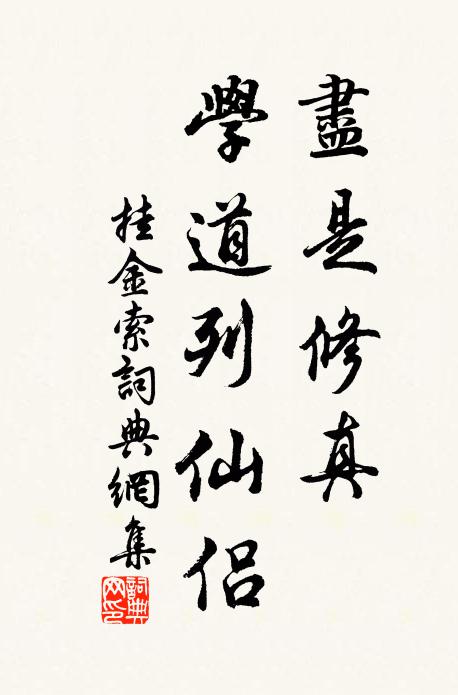 盡是修真
學道列仙侶
挂金索詞典網集
詞典網印